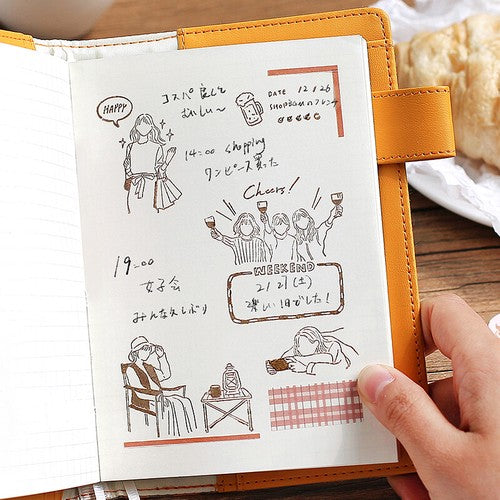 コスパ良くて
おいしい〜
DATE 12/26
HAPPY
14:00 shopping
ワンピース買った
Cheers!
19:00
女子会
みんな久しぶり
WEEKEND
2/27(土)
楽しい1日でした!